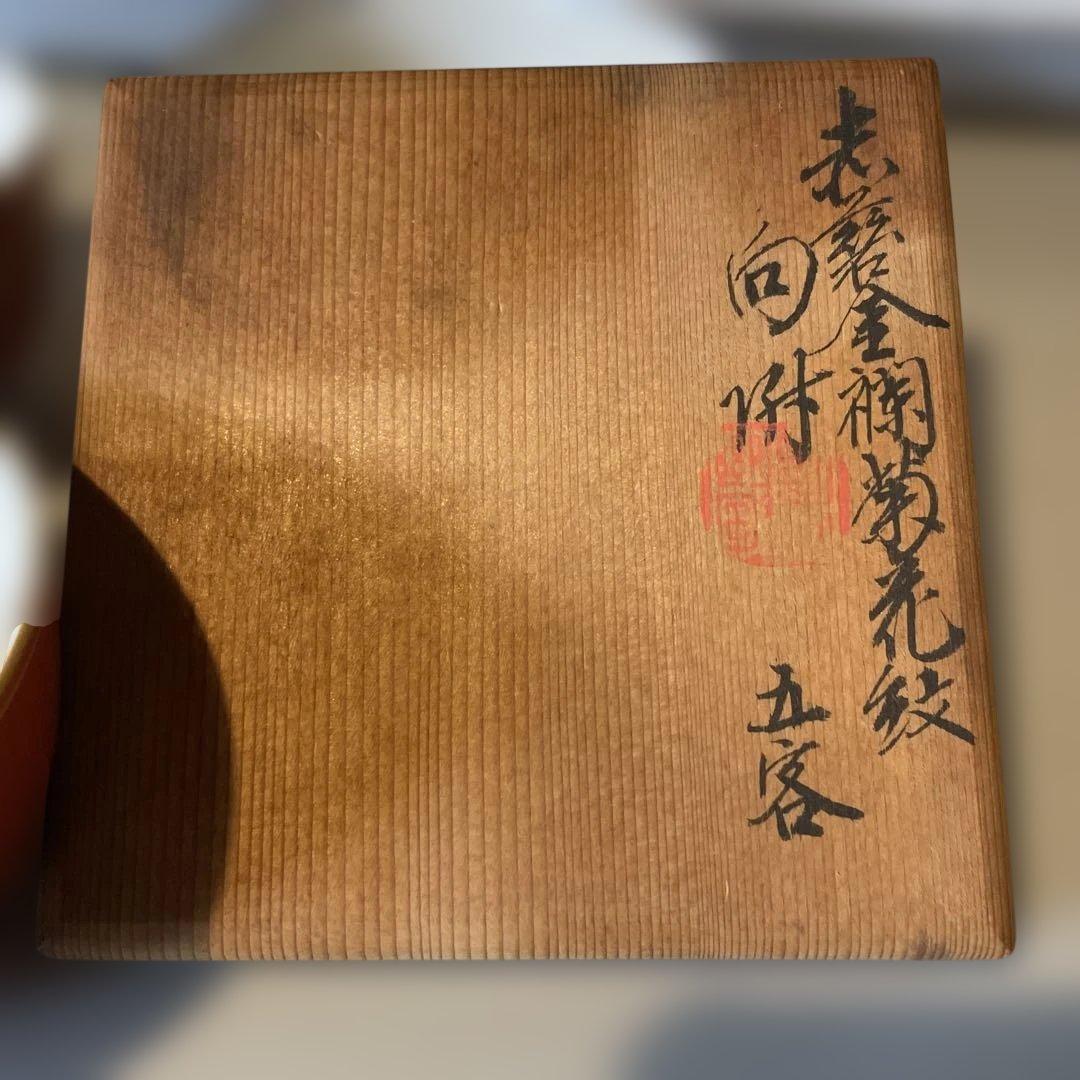 赤繪金襴菊花紋
向附
五客